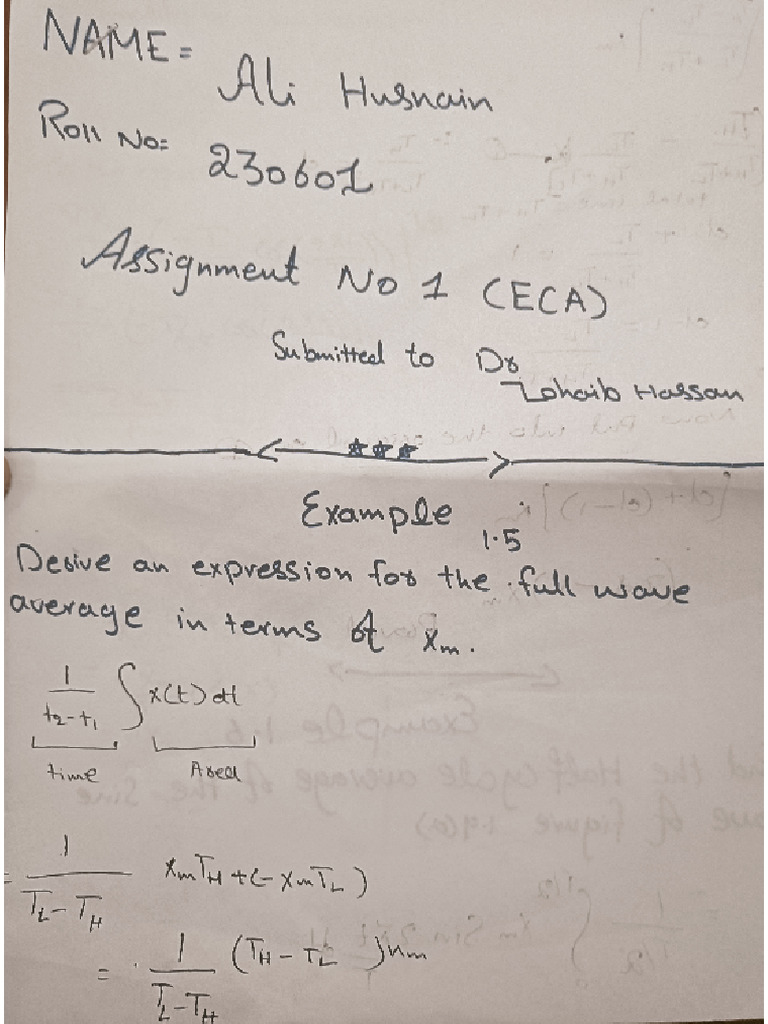 NAME=
Ali Husnain
Roll No:
230601
Assignment No 1 (ECA)
Submitted to Dr
Zohaib Hassan
Example 1.5
Derive an expression for the full wave
average in terms of Xm.
1/(t2-t1) ∫ x(t) dt
time Area
= 1/(TL - TH) XmTH + (- XmTL)
= 1/(TL - TH) (TH - TL) Xm